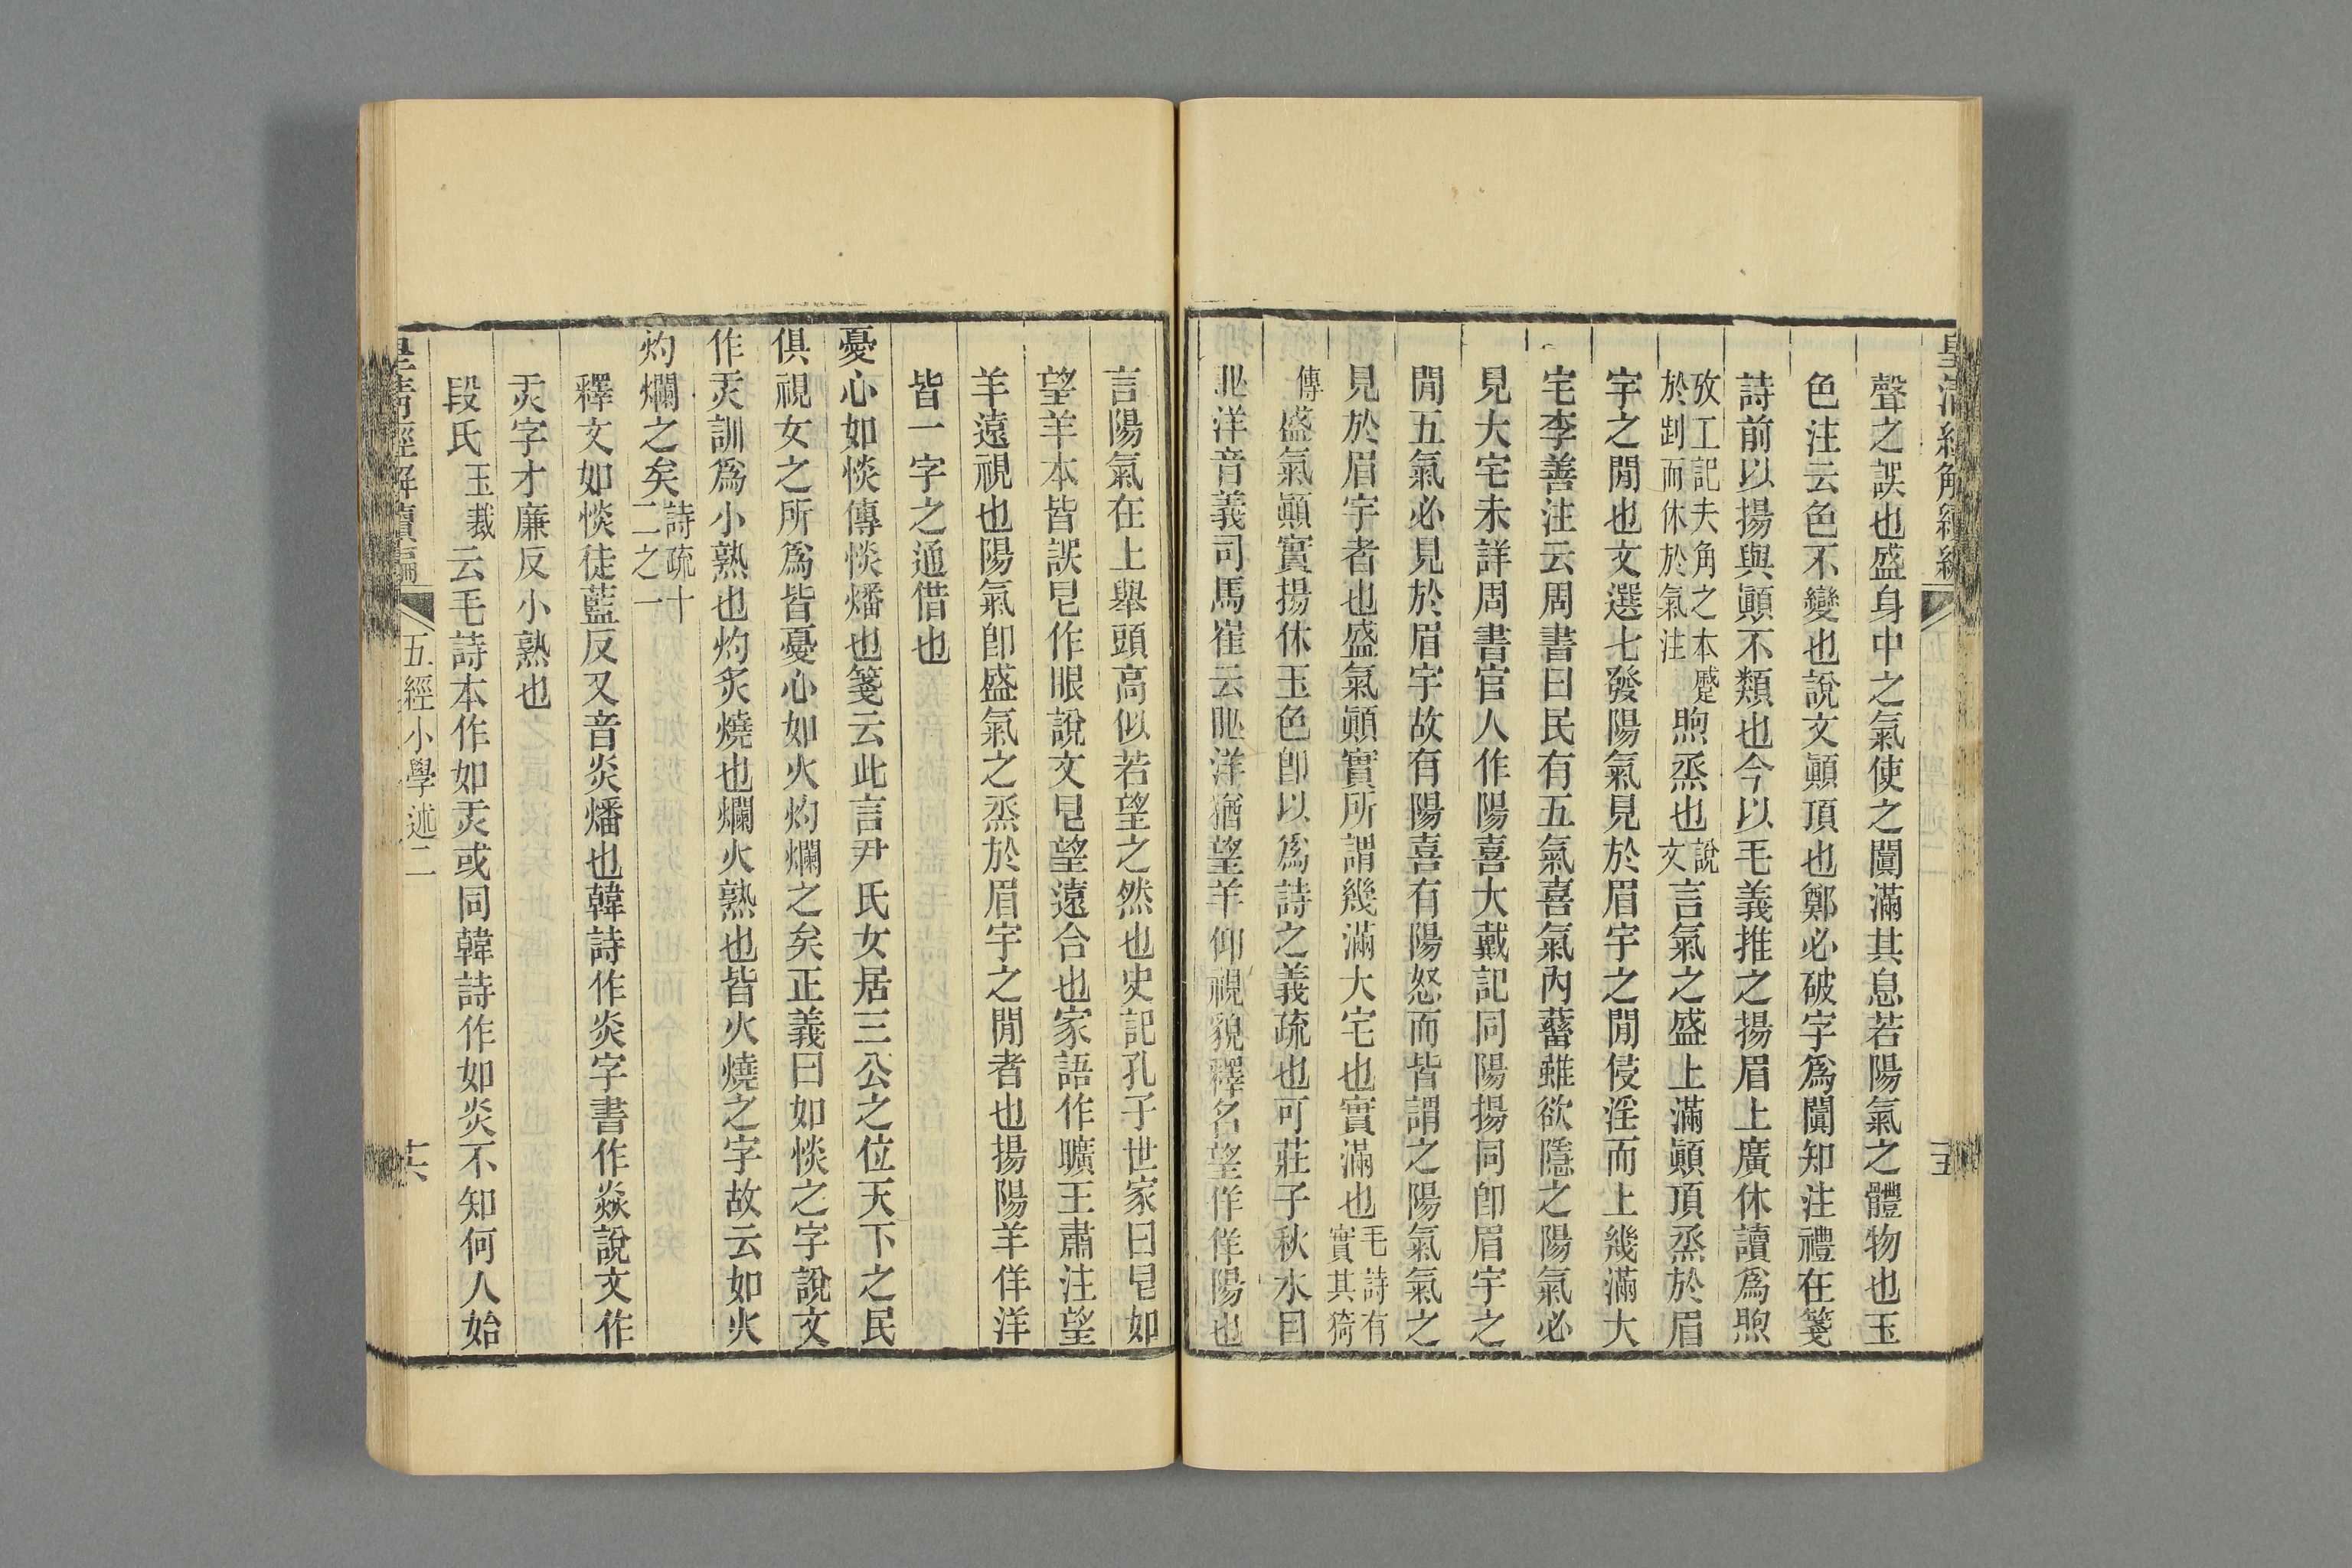 聲之誤也盛身中之氣使之闐滿其息若陽氣之體物也玉
色注云色不變也說文顚頂也鄭必破字爲闐知注禮在箋
詩前以揚與顚不類也今以毛義推之揚眉上廣休讀爲煦
攷工記夫角之本蹙
於㓢而休於氣注
煦烝也
說
文
言氣之盛上滿顚頂烝於眉
宇之閒也文選七發陽氣見於眉宇之閒侵淫而上幾滿大
宅李善注云周書曰民有五氣喜氣內蓄雖欲隱之陽氣必
見大宅未詳周書官人作陽喜大戴記同陽揚同卽眉宇之
閒五氣必見於眉宇故有陽喜有陽怒而皆謂之陽氣氣之
見於眉宇者也盛氣顚實所謂幾滿大宅也實滿也
毛詩有
實其猗
傳
盛氣顚實揚休玉色卽以爲詩之義疏也可莊子秋水目
洋音義司馬崔云盳洋猶望羊仰視貌釋名望佯佯陽也
言陽氣在上舉頭高似若望之然也史記孔子世家曰皀如
望羊本皆誤皀作眼說文皀望遠合也家語作曠王肅注望
羊遠視也陽氣卽盛氣之烝於眉宇之閒者也揚陽羊佯洋
皆一字之通借也
憂心如惔傳惔燔也箋云此言尹氏女居三公之位天下之民
俱視女之所爲皆憂心如火灼爛之矣正義曰如惔之字說文
作𤆎訓爲小熟也灼炙燒也爛火熟也皆火燒之字故云如火
灼爛之矣
詩疏十
二之一
釋文如惔徒藍反又音炎燔也韓詩作炎字書作焱說文作
𤆎字才廉反小熟也
段氏
玉裁
云毛詩本作如𤆎或同韓詩作如炎不知何人始
五經小學述二